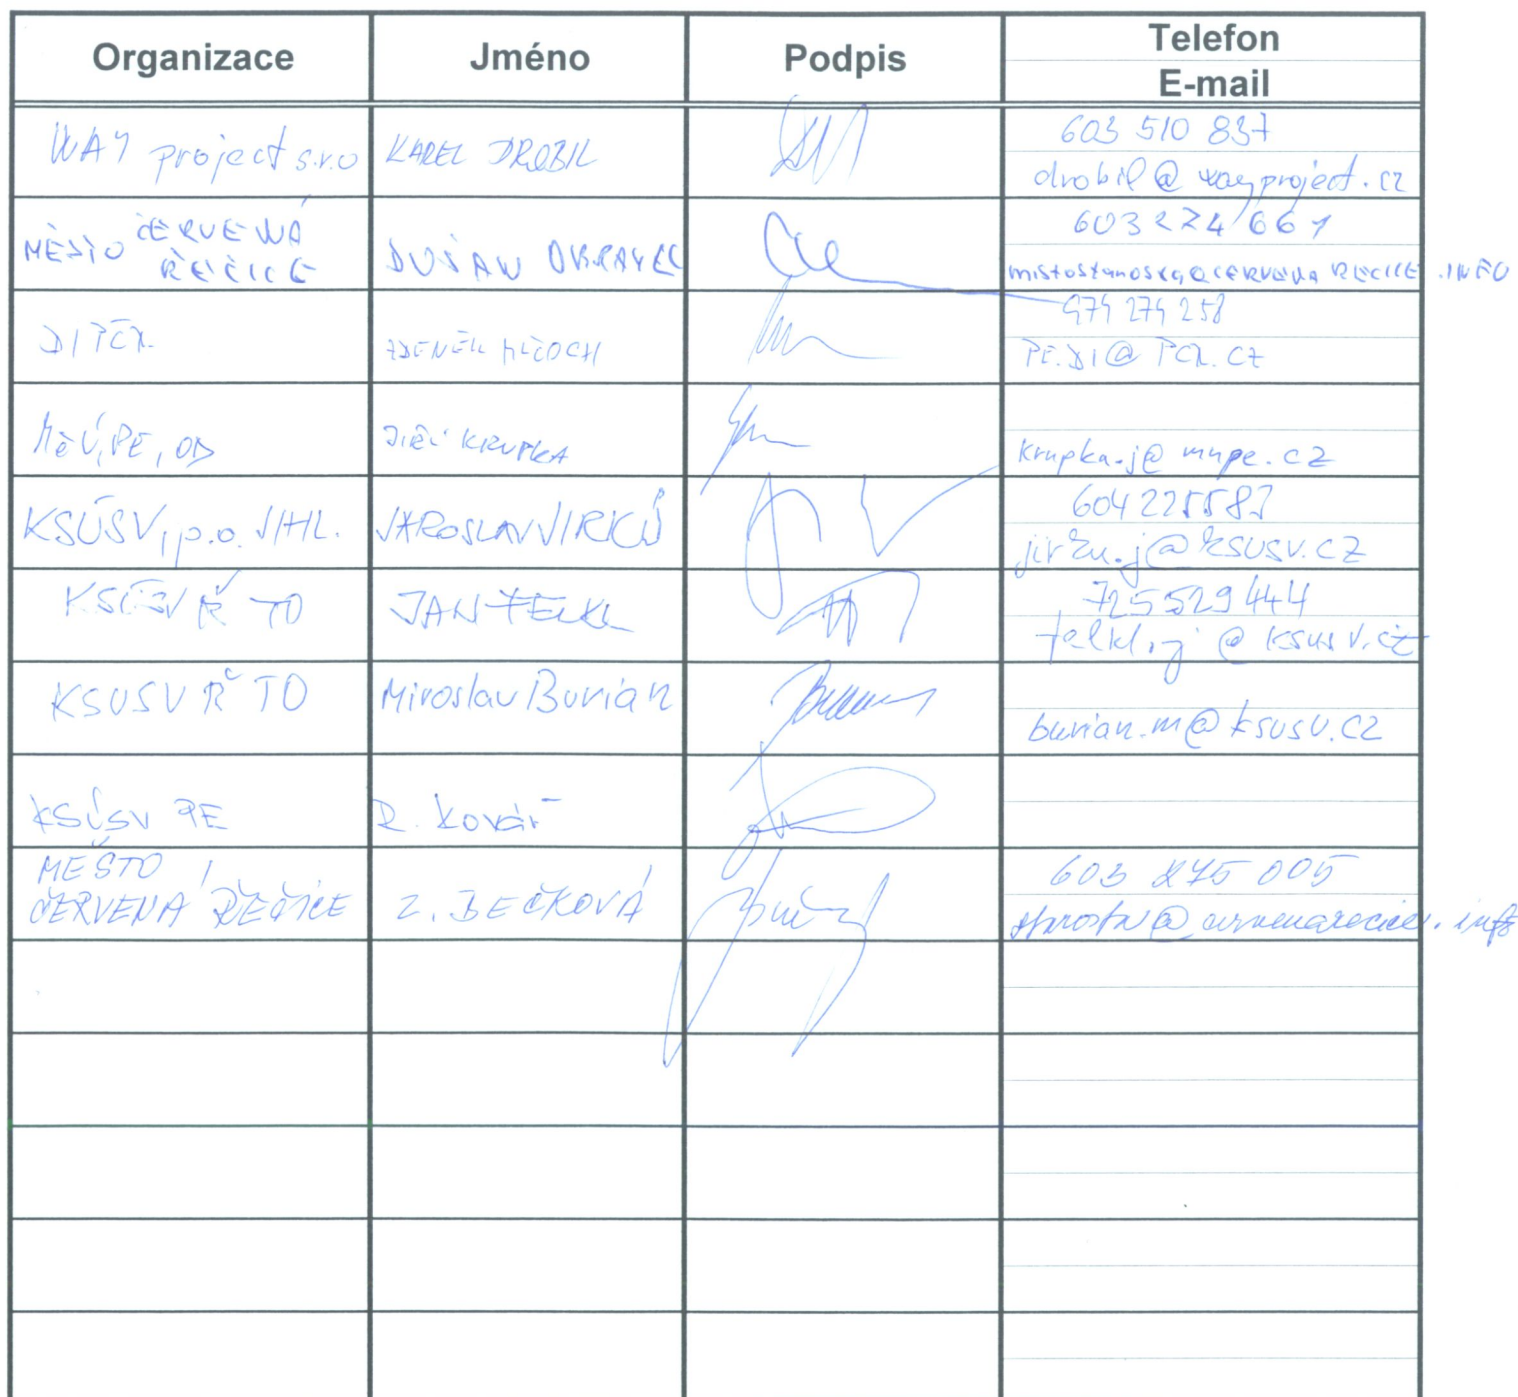 Organizace Jméno Podpis Telefon
E-mail
WAY project s.r.o KAREL DROBIL 603 510 837
drobil@wayproject.cz
MĚSTO ČERVENÁ ŘEČICE DUŠAN 603 274 661
mistostarosta@CERVENARECICE.INFO
DI PČR ZDENĚK 974 274 258
PE.DI@PCR.CZ
MěÚ, PE, OD JIŘÍ KRUPKA
krupka.j@mupe.cz
KSÚSV, p.o. JIHL. JAROSLAV JIRKŮ 604 225583
jirku.j@ksusv.cz
KSÚSV Ř TO JAN FELKL 725529444
felkl.j@ksusv.cz
KSUSV Ř TO Miroslav Burian
burian.m@ksusv.cz
KSÚSV PE R. Kovář
MĚSTO
ČERVENÁ ŘEČICE Z. BEČKOVÁ 603 275 005
starosta@cervenarecice.info